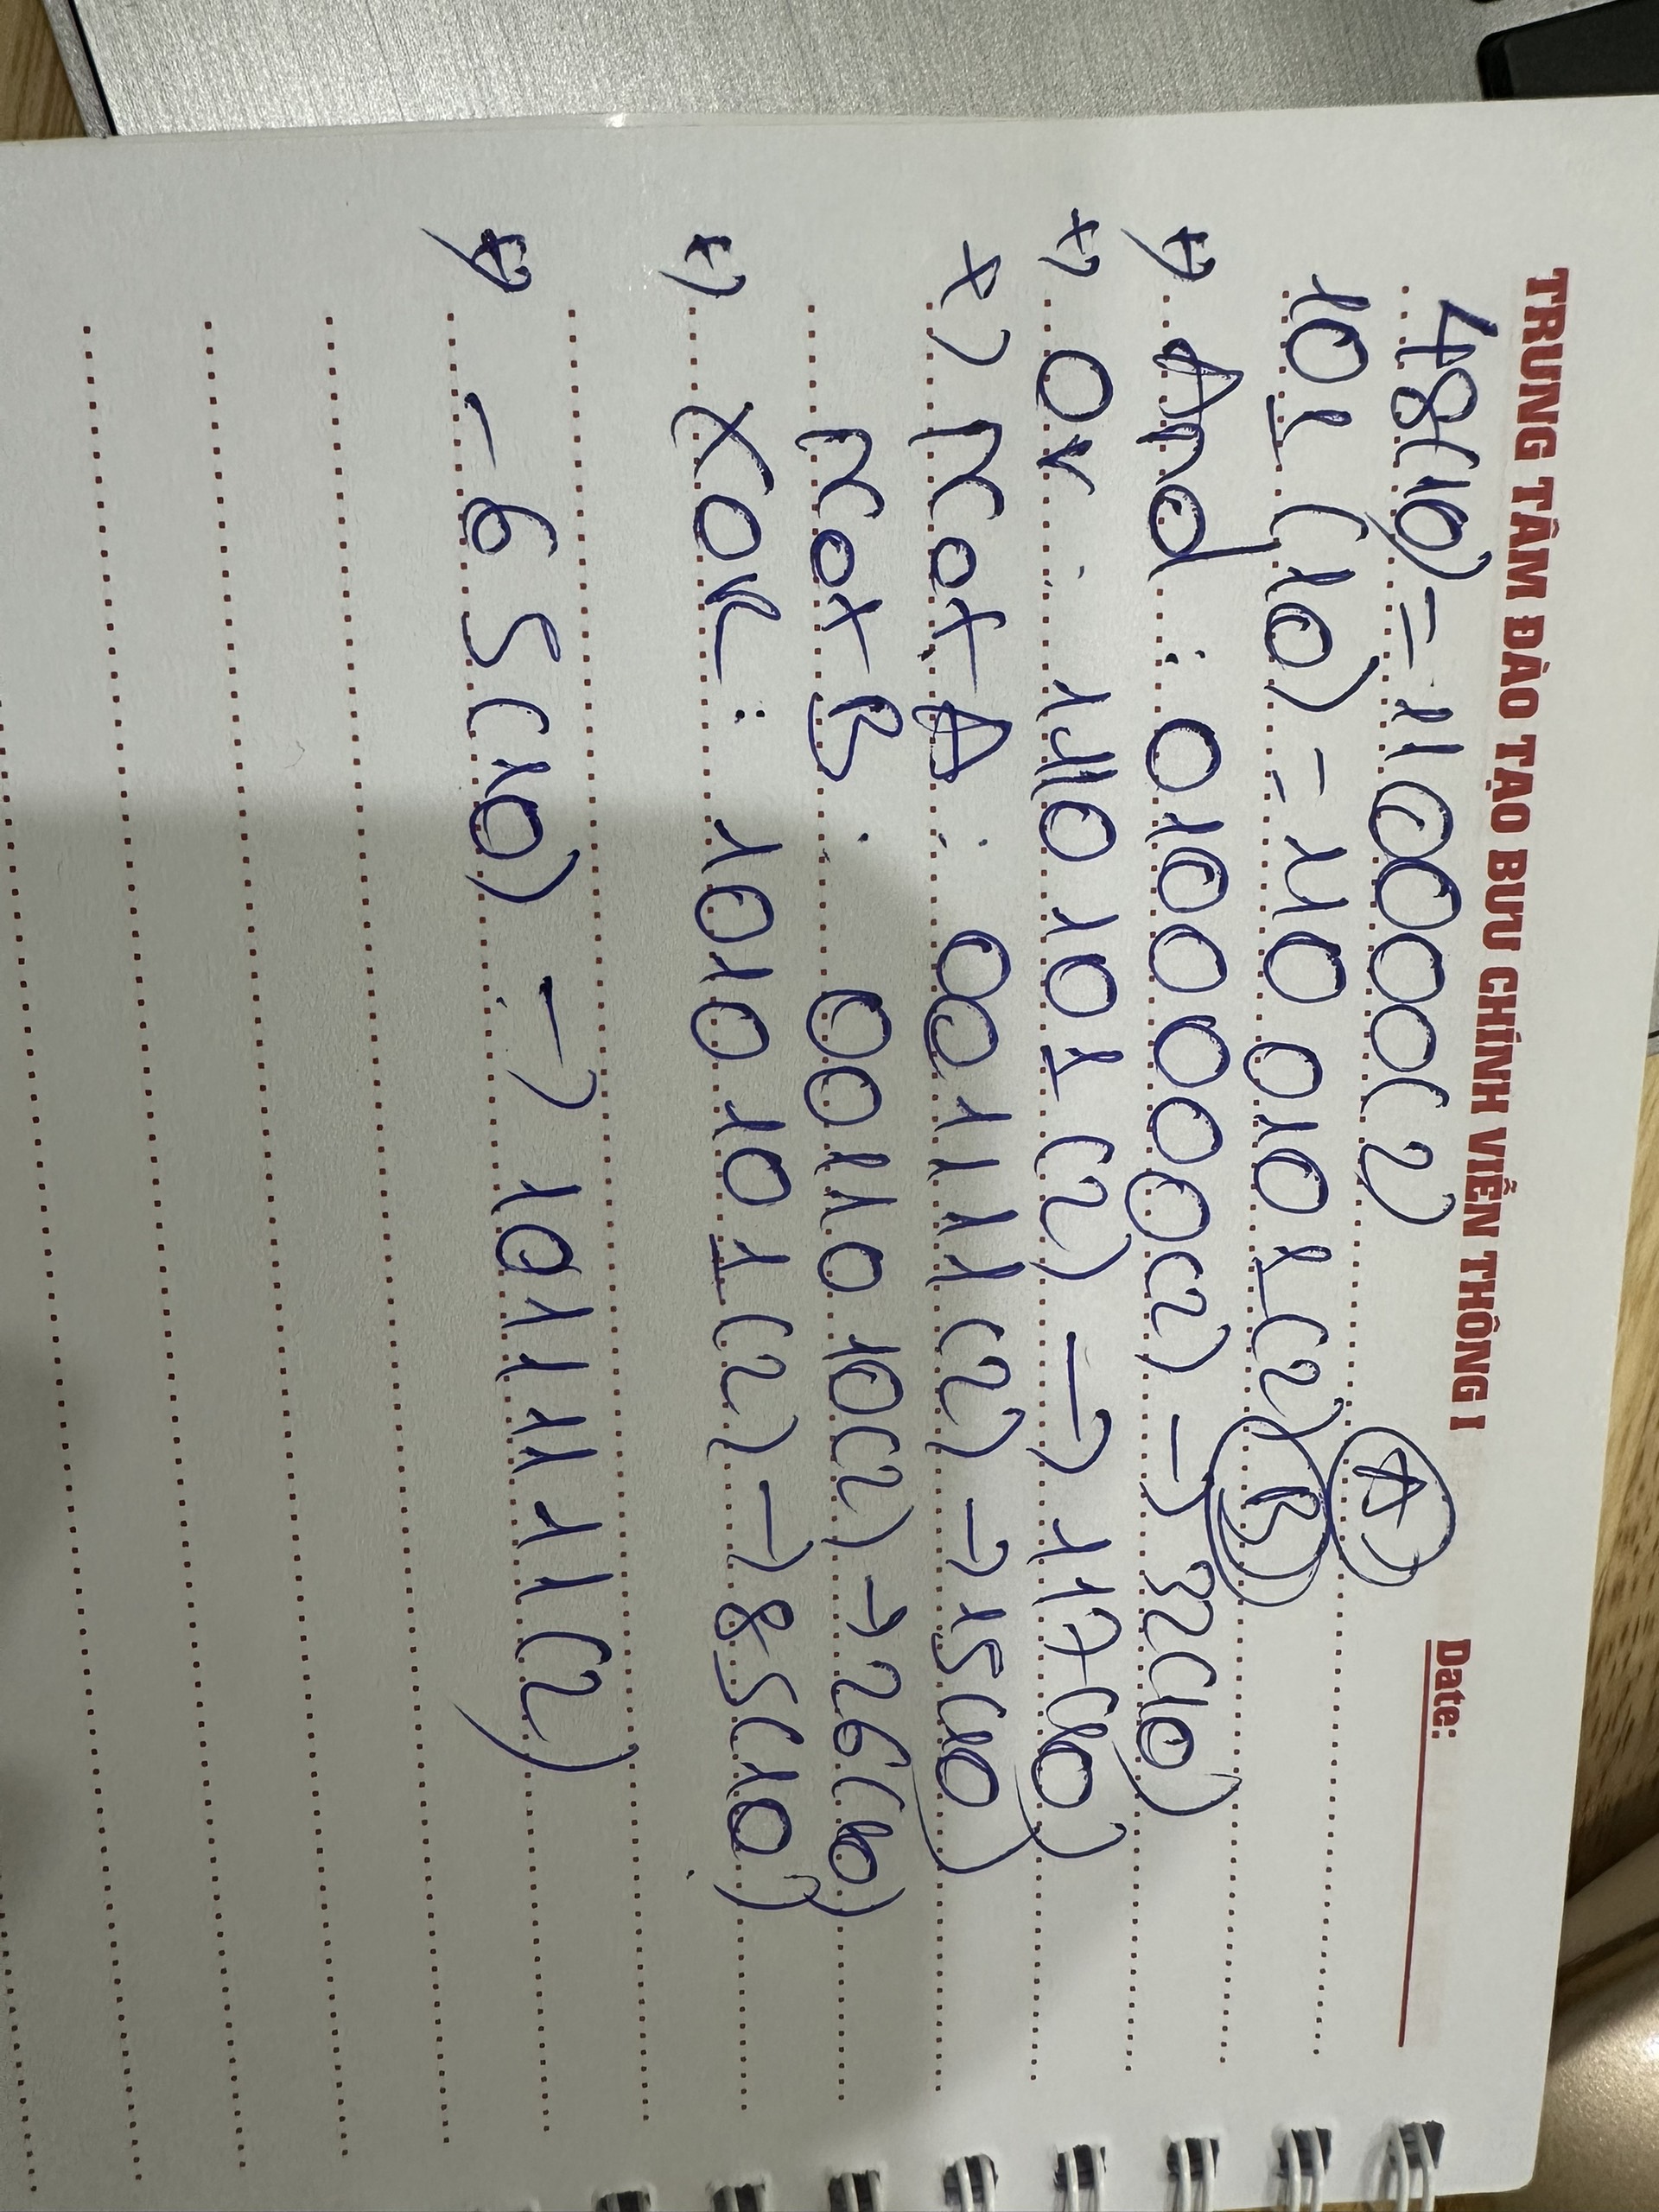 TRUNG TÂM ĐÀO TẠO BƯU CHÍNH VIỄN THÔNG I
Date:
48(10) = 110000(2) A
101 (10) = 110 0101(2) B
+) And : 0100000(2) → 32(10)
+) Or : 1110101(2) → 117(10)
+) Not A : 001111(2) → 15(10)
Not B : 0011010(2) → 26(10)
+) XOR : 1010101(2) → 85(10)
+) - 65(10) → 10111111(2)